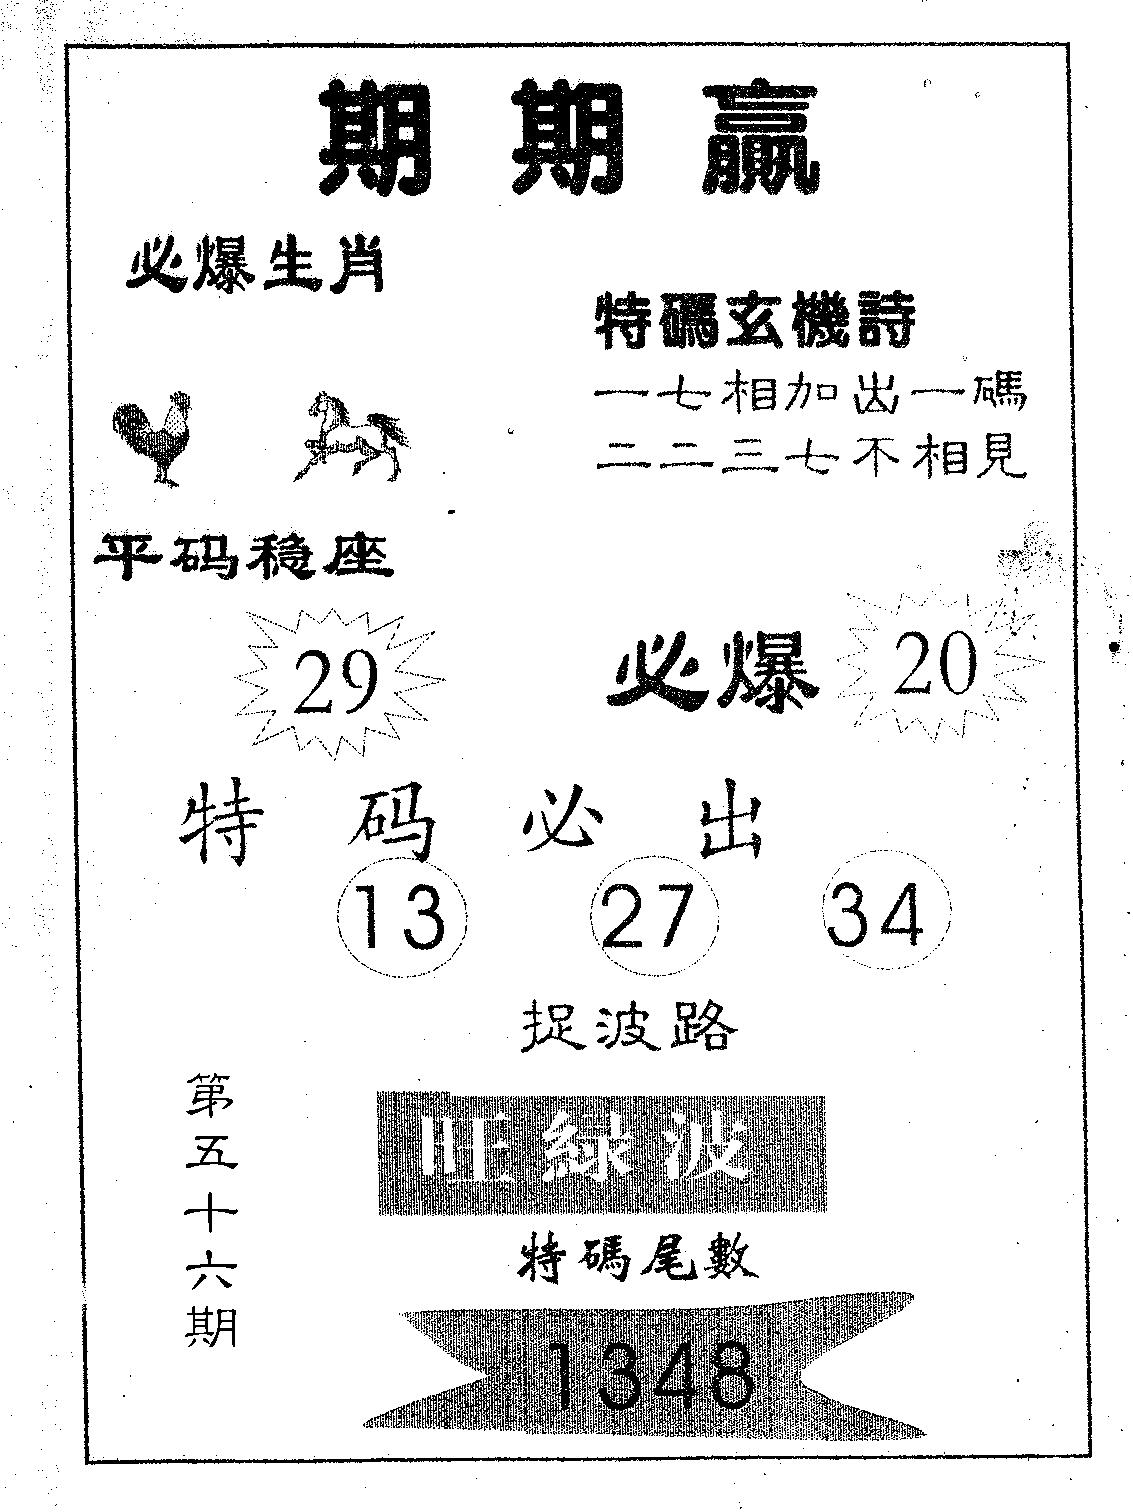 期期贏
必爆生肖
特碼玄機詩
一七相加出一碼
二二三七不相見
平码稳座
29
必爆 20
特码必出
13 27 34
捉波路
旺綠波
特碼尾數
1348
第五十六期